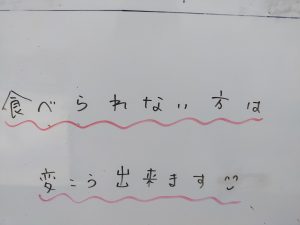 食べられない方は
変こう出来ます